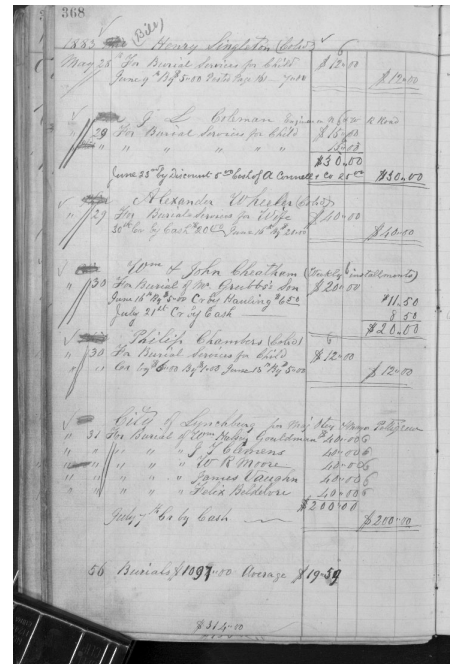 368
(Bill)
1883 Henry Singleton (Cold) 6
May 28 For Burial Services for Child $12-00
June 9th By $5-00 7-00 $12.00
J L Coleman Engineer R Road
" 29 For Burial Services for Child $15-00
" " " " " " 15-00
$30-00
June 25th by Discount 5.00 Cash of A Connell & Co 25.00 $30-00
Alexander Wheeler (Cold)
" 29 For Burial Services for Wife $40-00
30th Cr by Cash $20 June 16th By 20-00 $40-00
Wm & John Cheatham (Weekly installments)
" 30 For Burial of Mr Grubbs's Son $20-00
June 16th By $5-00 Cr by Hauling $6.50 $11.50
July 21st Cr by Cash 8 50
$20-00
Philip Chambers (Cold) 6
" 30 For Burial Services for Child $12-00
" " Cr By $6-00 By $1-00 June 13th By 5-00 $12-00
City of Lynchburg
" 31 For Burial of Gouldman $40-00 6
" " " " " J T Clemens 40-00 6
" " " " " W R Moore 40-00 6
" " " " " James Vaughn 40-00 6
" " " " " Felix 40-00 6
$200-00
July 7th Cr by Cash $200-00
56 Burials $1097-00 Average $19-59
$314-00